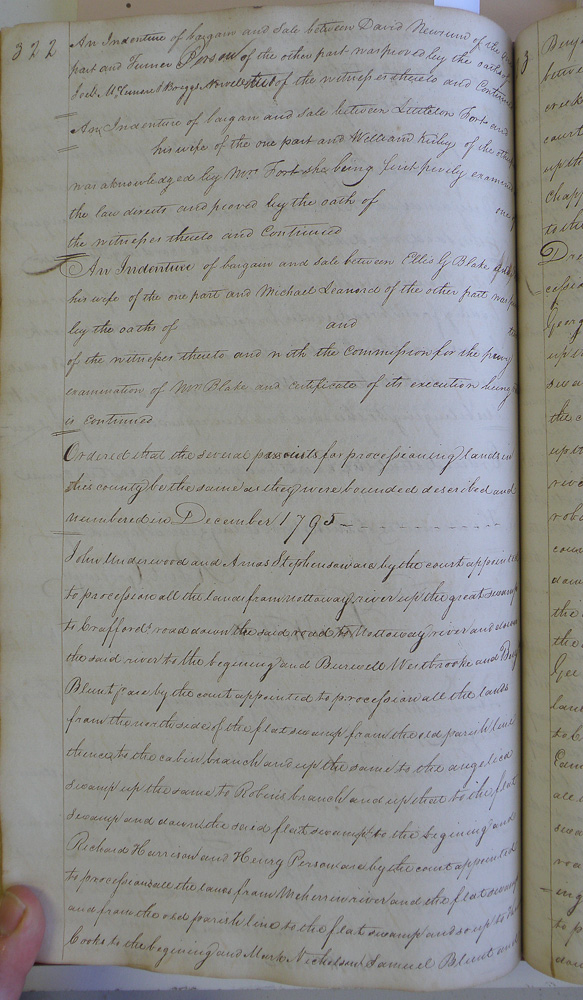 322
An Indenture of bargain and Sale between David Newsum of the one
part and Turner Person of the other part was proved by the oaths of
Joel M. Turner & Briggs two of the witnesses thereto and Continued
An Indenture of bargain and sale between Littleton Fort and
his wife of the one part and William Kirby of the other
was acknowledged by Mrs Fort she being first privily examined
the law directs and proved by the oath of one of
the witnesses thereto and Continued
An Indenture of bargain and sale between Ellis G Blake and
his wife of the one part and Michael Leanord of the other part was
by the oaths of and
of the witnesses thereto and with the commission for the privy
examination of Mrs Blake and certificate of its execution being
is continued
Ordered that the several precincts for processioning lands in
this county be the same as they were bounded described and
numbered in December 1795
John Underwood and Amos Stephenson are by the court appointed
to procession all the land from nottoway river up the great swamp
to Crafford's road down the said road to Nottoway river and down
the said river to the begining and Burwell Westbrooke and Benj
Blunt are by the court appointed to procession all the lands
from the north side of the flat swamp from the old parish line
thence to the cabin branch and up the same to the angelica
swamp up the same to Robins branch and up that to the flat
swamp and down the said flat swamp to the begining and
Richard Harrison and Henry Person are by the court appointed
to procession all the lands from Meherrin river and the flat swamp
and from the old parish line to the flat swamp and so up to
Cooks to the begining and Mark Nicholson Samuel Blunt and